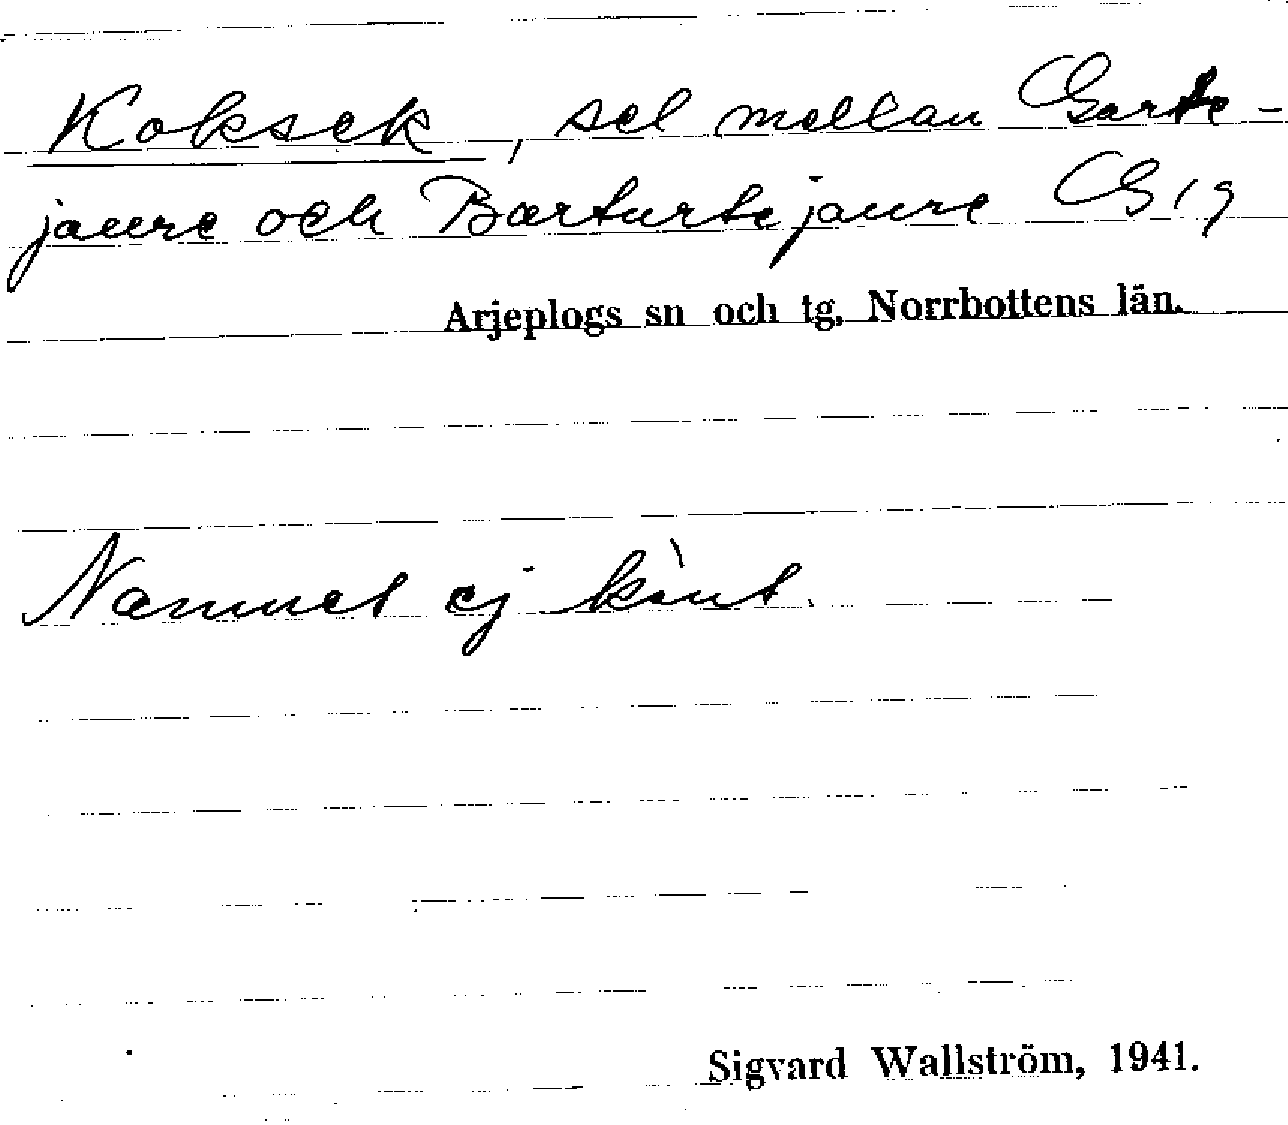 Koksek, sel mellan Garte-
jaure och Barturtejaure G 19
Arjeplogs sn och tg. Norrbottens län.
Namnet ej känt.
Sigvard Wallström, 1941.